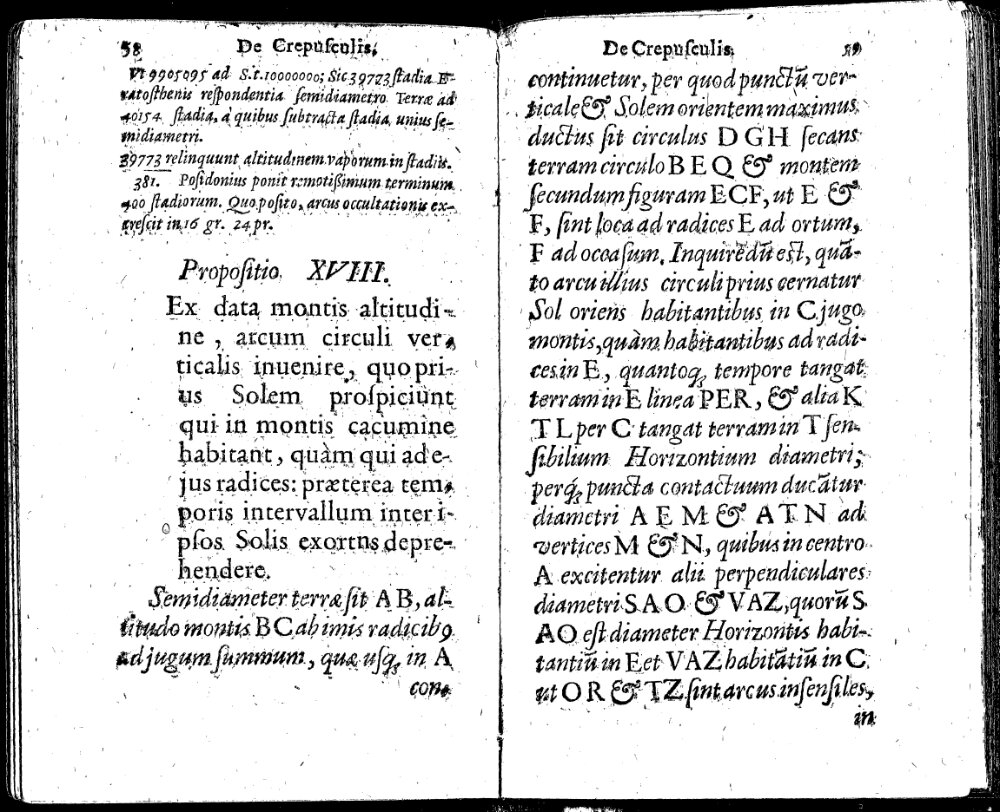 58 De Crepusculis.
Vt 9905095 ad S.t. 10000000; Sic 39773 stadia E-
ratosthenis respondentia semidiametro Terræ ad
40154 stadia, à quibus subtracta stadia unius se-
midiametri.
39773 relinquunt altitudinem vaporum in stadiis.
381. Posidonius ponit remotißimum terminum
400 stadiorum. Quo posito, arcus occultationis ex-
crescit in 16 gr. 24 pr.
Propositio XVIII.
Ex data montis altitudi-
ne, arcum circuli ver-
ticalis inuenire, quo pri-
us Solem prospiciunt
qui in montis cacumine
habitant, quàm qui ad e-
jus radices: præterea tem-
poris intervallum inter i-
psos Solis exortus depre-
hendere.
Semidiameter terræ sit AB, al-
titudo montis BC ab imis radicib9
ad jugum summum, quæ usq; in A
con-
De Crepusculis. 59
continuetur, per quod punctũ ver-
ticale & Solem orientem maximus
ductus sit circulus DGH secans
terram circulo BEQ & montem
secundum figuram ECF, ut E &
F, sint loca ad radices E ad ortum,
F ad occasum. Inquirẽdũ est, quã-
to arcu illius circuli prius cernatur
Sol oriens habitantibus in C jugo
montis, quàm habitantibus ad radi-
ces in E, quantoq; tempore tangat
terram in E linea PER, & alia K
TL per C tangat terram in T sen-
sibilium Horizontium diametri;
perq́; puncta contactuum ducãtur
diametri AEM & ATN ad
vertices M & N, quibus in centro
A excitentur alii perpendiculares
diametri SAO & VAZ, quorũ S
AO est diameter Horizontis habi-
tantiũ in E et VAZ habitãtiũ in C
ut OR & TZ sint arcus insensiles,
in